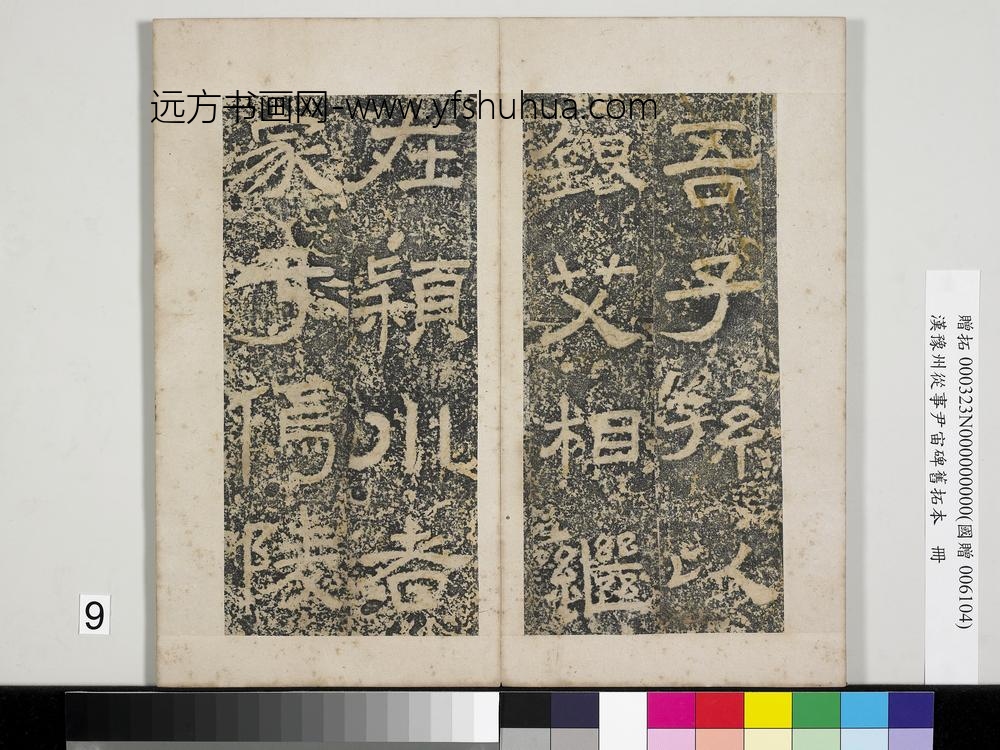 远方书画网-www.yfshuhua.com
吾子孫以
銀艾相繼
在穎川者
家于傿陵
贈拓 000323N000000000(國贈 006104)
漢豫州從事尹宙碑舊拓本 冊
9